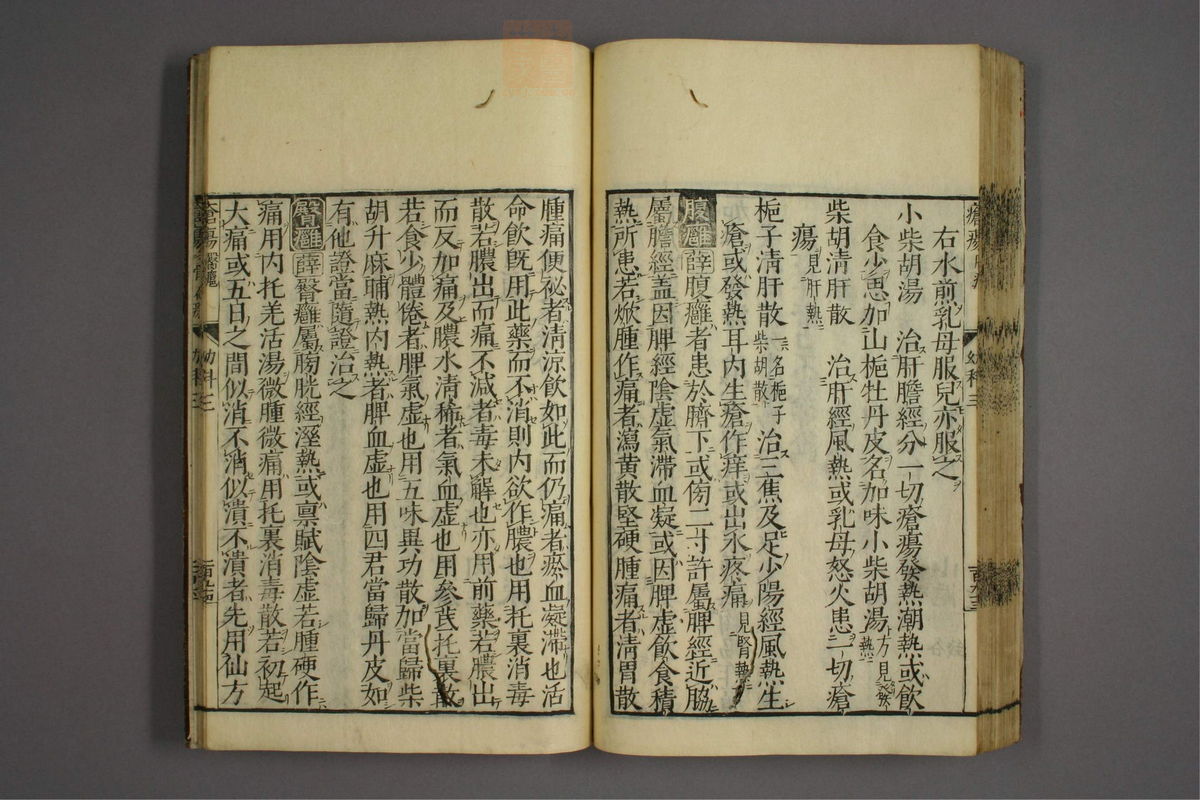 右水煎乳母服兒亦服之
小柴胡湯　治肝膽經分一切瘡瘍發熱潮熱或飲
食少思加山梔牡丹皮名加味小柴胡湯方見發熱
柴胡清肝散　治肝經風熱或乳母怒火患一切瘡
瘍見肝熱
梔子清肝散一名梔子柴胡散治三焦及足少陽經風熱生
瘡或發熱耳內生瘡作痒或出水疼痛見腎熱
腹癰薛腹癰者患於臍下或傍二寸許屬脾經近脇
屬膽經蓋因脾經陰虛氣滯血凝或因脾虛飲食積
熱所患若焮腫作痛者瀉黄散堅硬腫痛者淸胃散
腫痛便祕者淸涼飲如此而仍痛者瘀血凝滯也活
命飲既用此藥而不消則內欲作膿也用托裏消毒
散若膿出而痛不減者毒未解也亦用前藥若膿出
而反加痛及膿水淸稀者氣血虛也用參芪托裏散
若食少體倦者脾氣虛也用五味異功散加當歸柴
胡升麻晡熱內熱者脾血虛也用四君當歸丹皮如
有他證當隨證治之
臀癰薛臀癰屬膀胱經溼熱或禀賦陰虛若腫硬作
痛用內托羌活湯微腫微痛用托裏消毒散若初起
大痛或五日之間似消不消似潰不潰者先用仙方
幼科三
幼科三